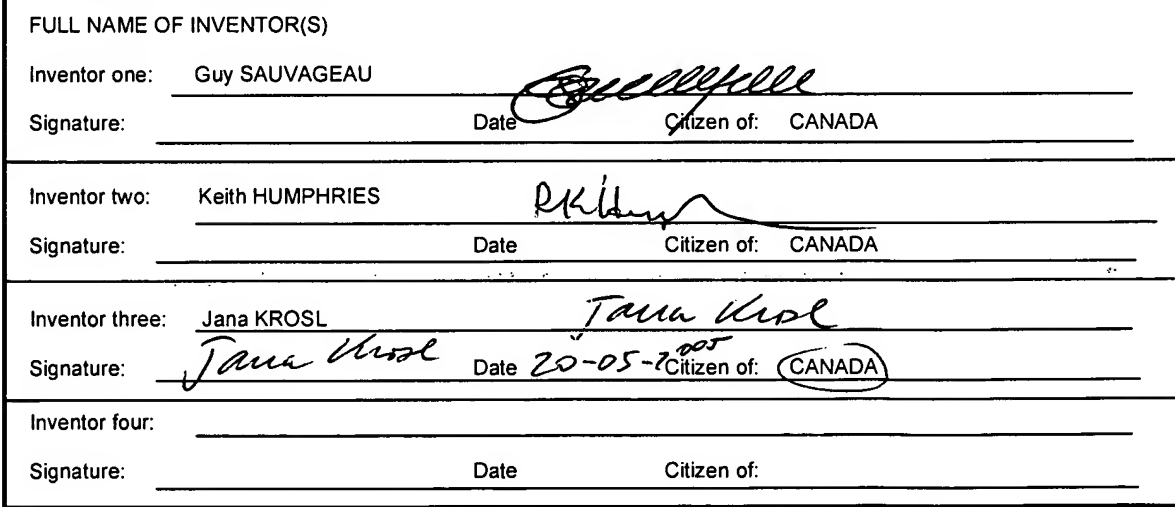 FULL NAME OF INVENTOR(S)
Inventor one: Guy SAUVAGEAU
Signature: Date Citizen of: CANADA
Inventor two: Keith HUMPHRIES RKHum
Signature: Date Citizen of: CANADA
Inventor three: Jana KROSL Jana Krosl
Signature: Jana Krosl Date 20-05-2005 Citizen of: CANADA
Inventor four:
Signature: Date Citizen of: